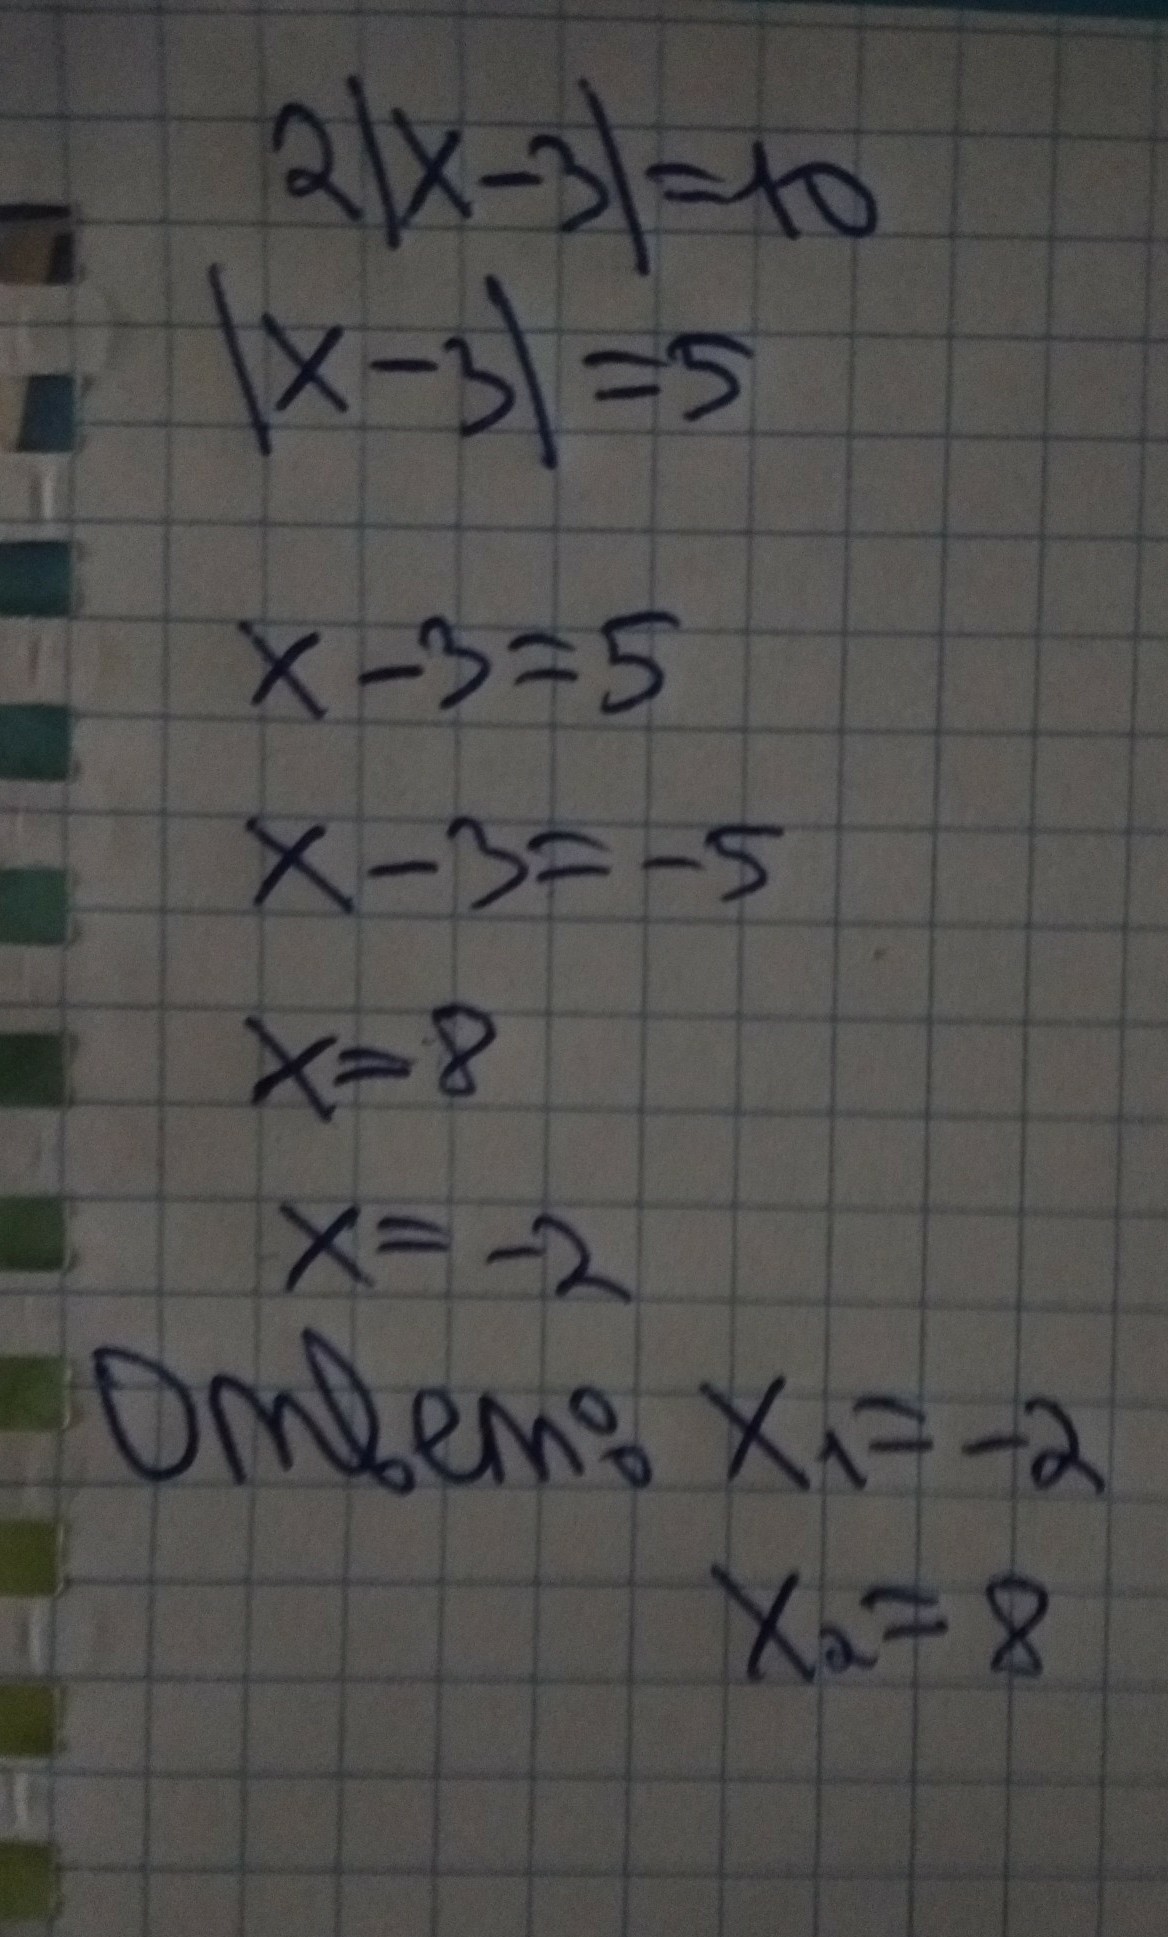 2|x-3|=10
|x-3|=5
x-3=5
x-3=-5
x=8
x=-2
Ответ: x₁=-2
x₂=8